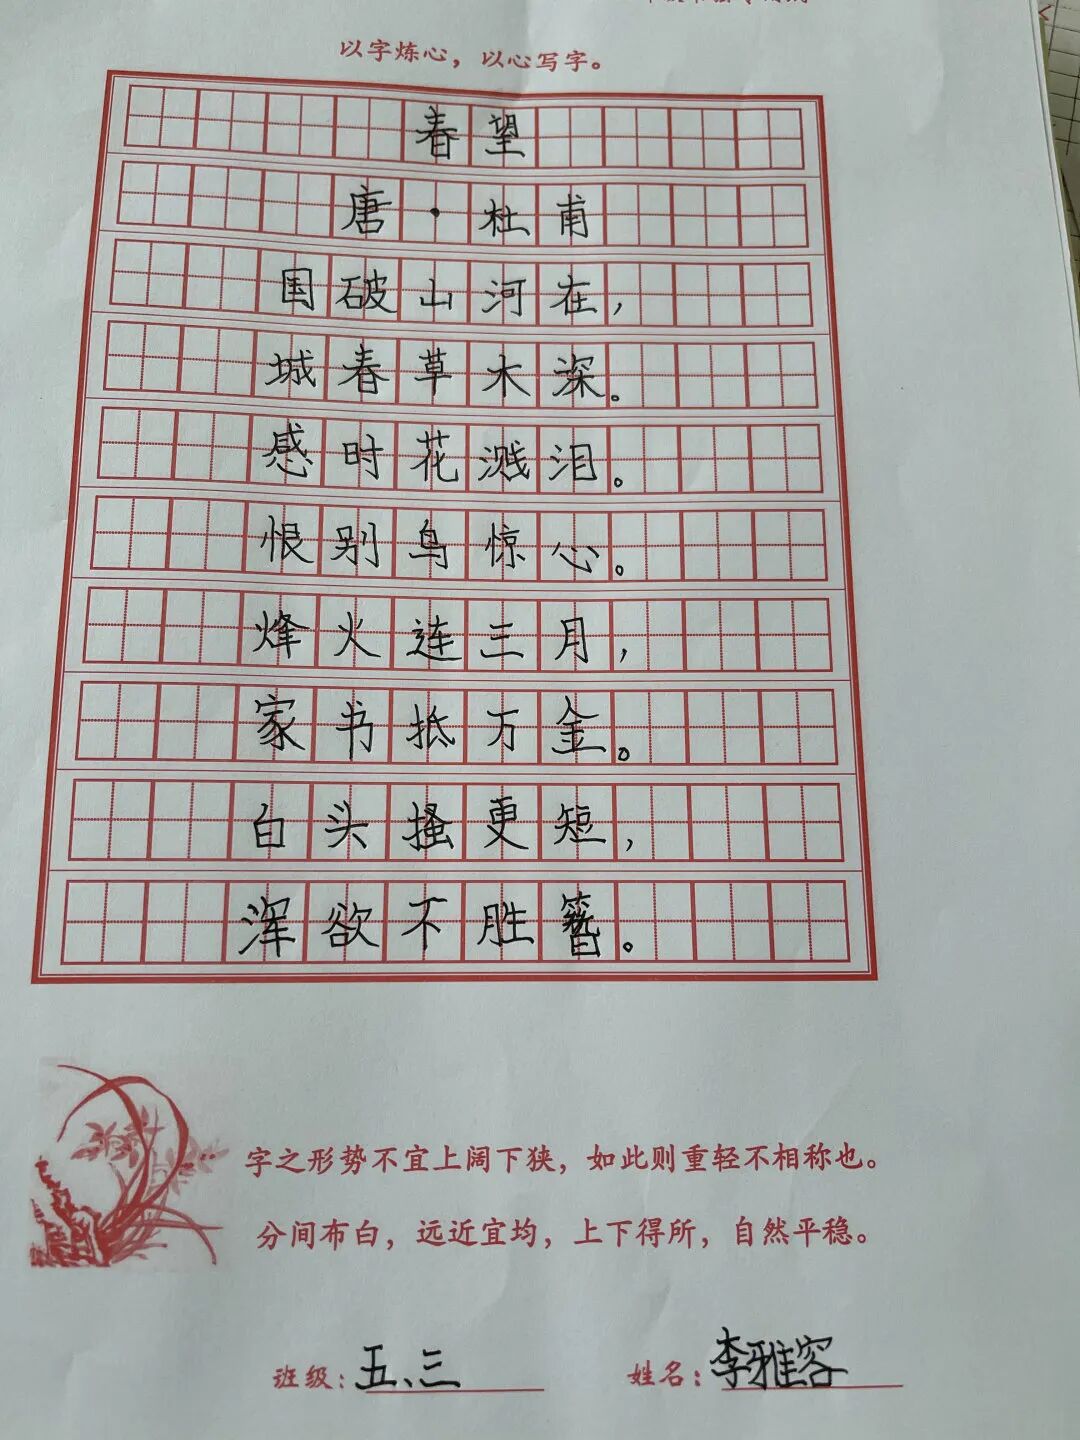 以字炼心，以心写字。
春望
唐·杜甫
国破山河在，
城春草木深。
感时花溅泪。
恨别鸟惊心。
烽火连三月，
家书抵万金。
白头搔更短，
浑欲不胜簪。
字之形势不宜上阔下狭，如此则重轻不相称也。
分间布白，远近宜均，上下得所，自然平稳。
班级：五、三 姓名：李雅容